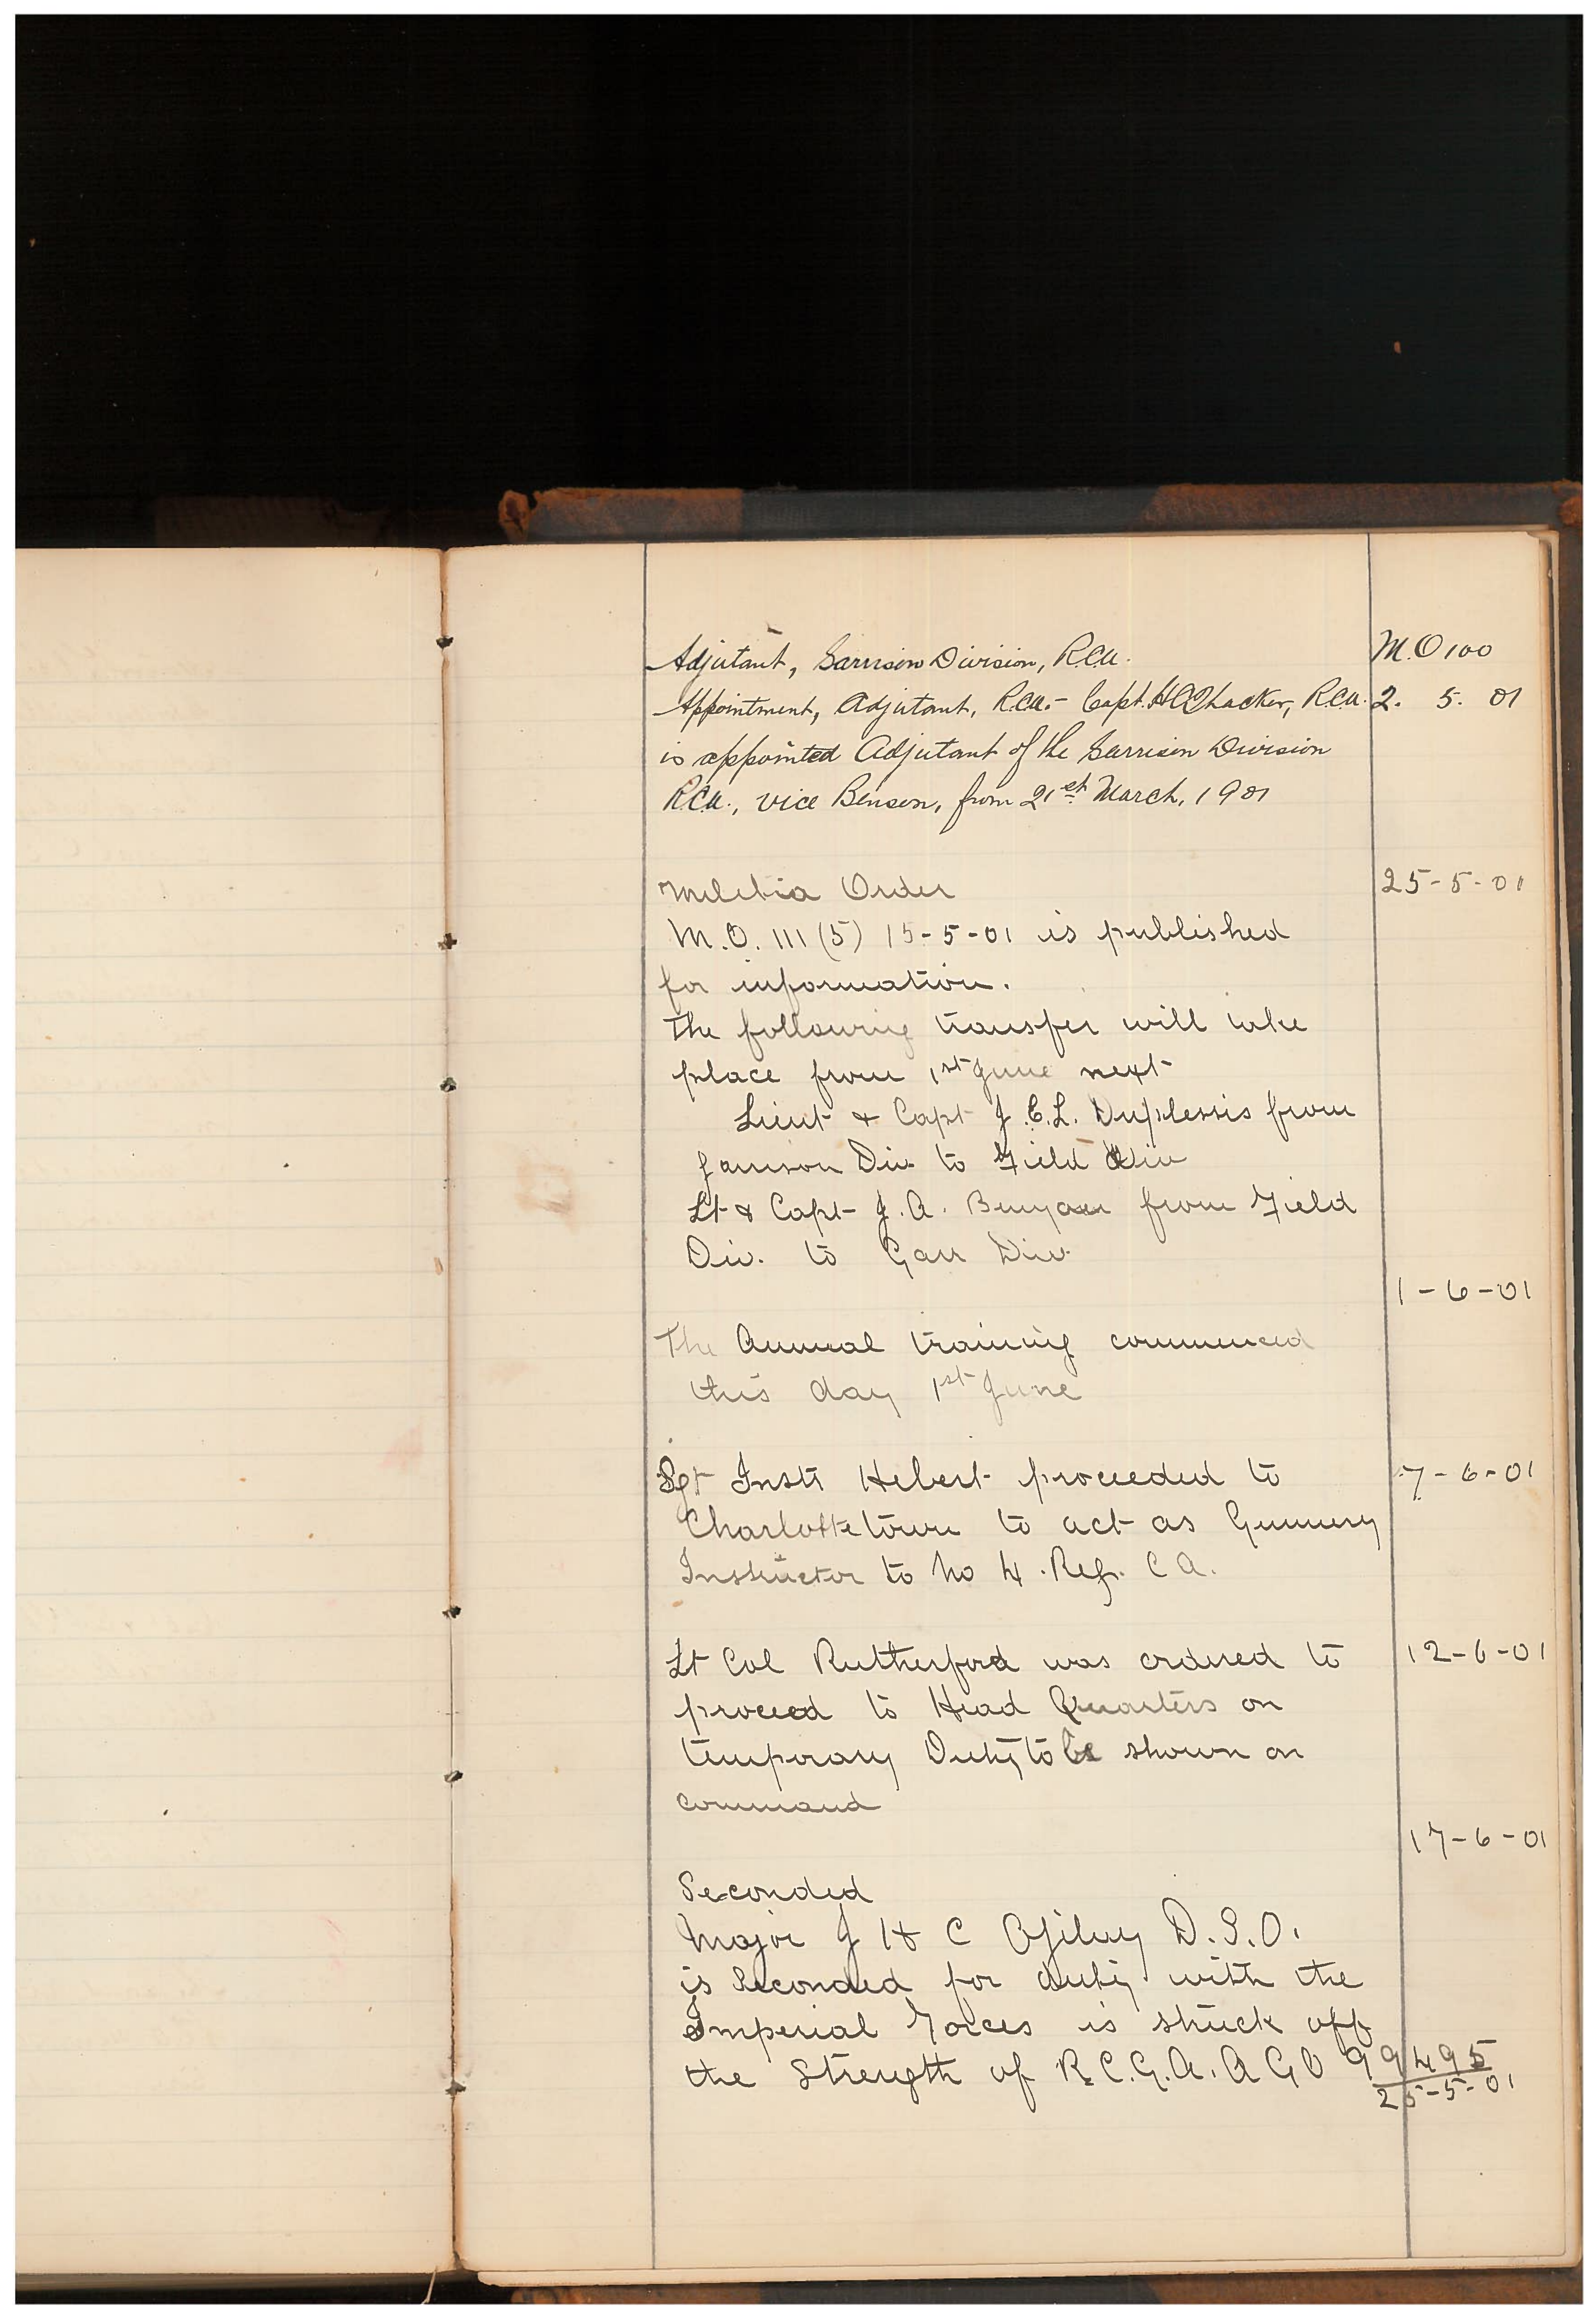 Adjutant, Garrison Division, R.C.A. M.O 100
Appointment, Adjutant, R.C.A.- Capt. H C Thacker, R.C.A. 2. 5. 01
is appointed Adjutant of the Garrison Division
R.C.A., vice Benson, from 21st March, 1901
Militia Order 25-5-01
M.O. 111 (5) 15-5-01 is published
for information.
The following transfer will take
place from 1st June next
Lieut & Capt J.E.L. Duplessis from
Garrison Div to Field Div
Lt & Capt J.A. Benyon from Field
Div. to Garr Div.
1-6-01
The Annual training commenced
this day 1st June
Sgt Instr Hebert proceeded to 7-6-01
Charlottetown to act as Gunnery
Instructor to No 4. Reg. C A.
Lt Col Rutherford was ordered to 12-6-01
proceed to Head Quarters on
temporary Duty to be shown on
command
17-6-01
Seconded
Major J H C Ogilvy D.S.O.
is Seconded for duty with the
Imperial Forces is struck off
the Strength of R.C.G.A. A G O 99495
25-5-01